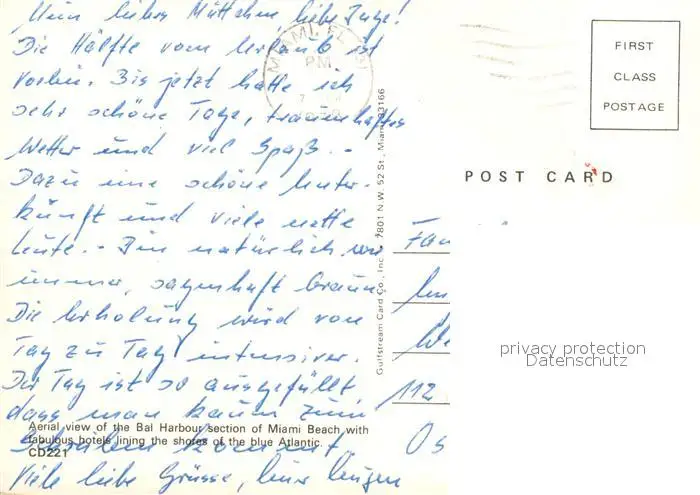 Mein liebes Müttchen, liebe Inge!
Die Hälfte vom Urlaub ist
vorbei. Bis jetzt hatte ich
sehr schöne Tage, traumhaftes
Wetter und viel Spaß. -
Dazu eine schöne Unter-
kunft und viele nette
Leute. - Bin natürlich wie
immer, sagenhaft braun
Die Erholung wird von
Tag zu Tag intensiver.
Der Tag ist so ausgefüllt
dass man kaum zum
Schreiben kommt.
Viele liebe Grüsse,
Aerial view of the Bal Harbour section of Miami Beach with
fabulous hotels lining the shores of the blue Atlantic.
CD221
MIAMI, FL
PM
Gulfstream Card Co., Inc., 7801 N.W. 52 St., Miami 33166
FIRST
CLASS
POSTAGE
POST CARD
112
privacy protection
Datenschutz